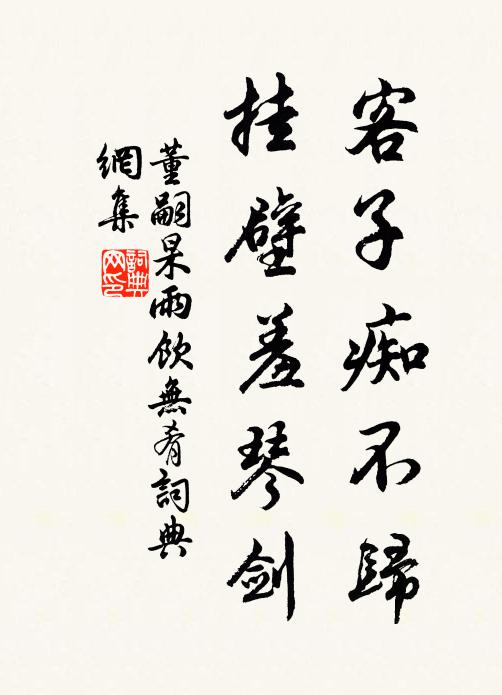 客子痴不歸
挂壁羞琴剑
董嗣杲雨飲無肴詞典
網集
詞典
网印